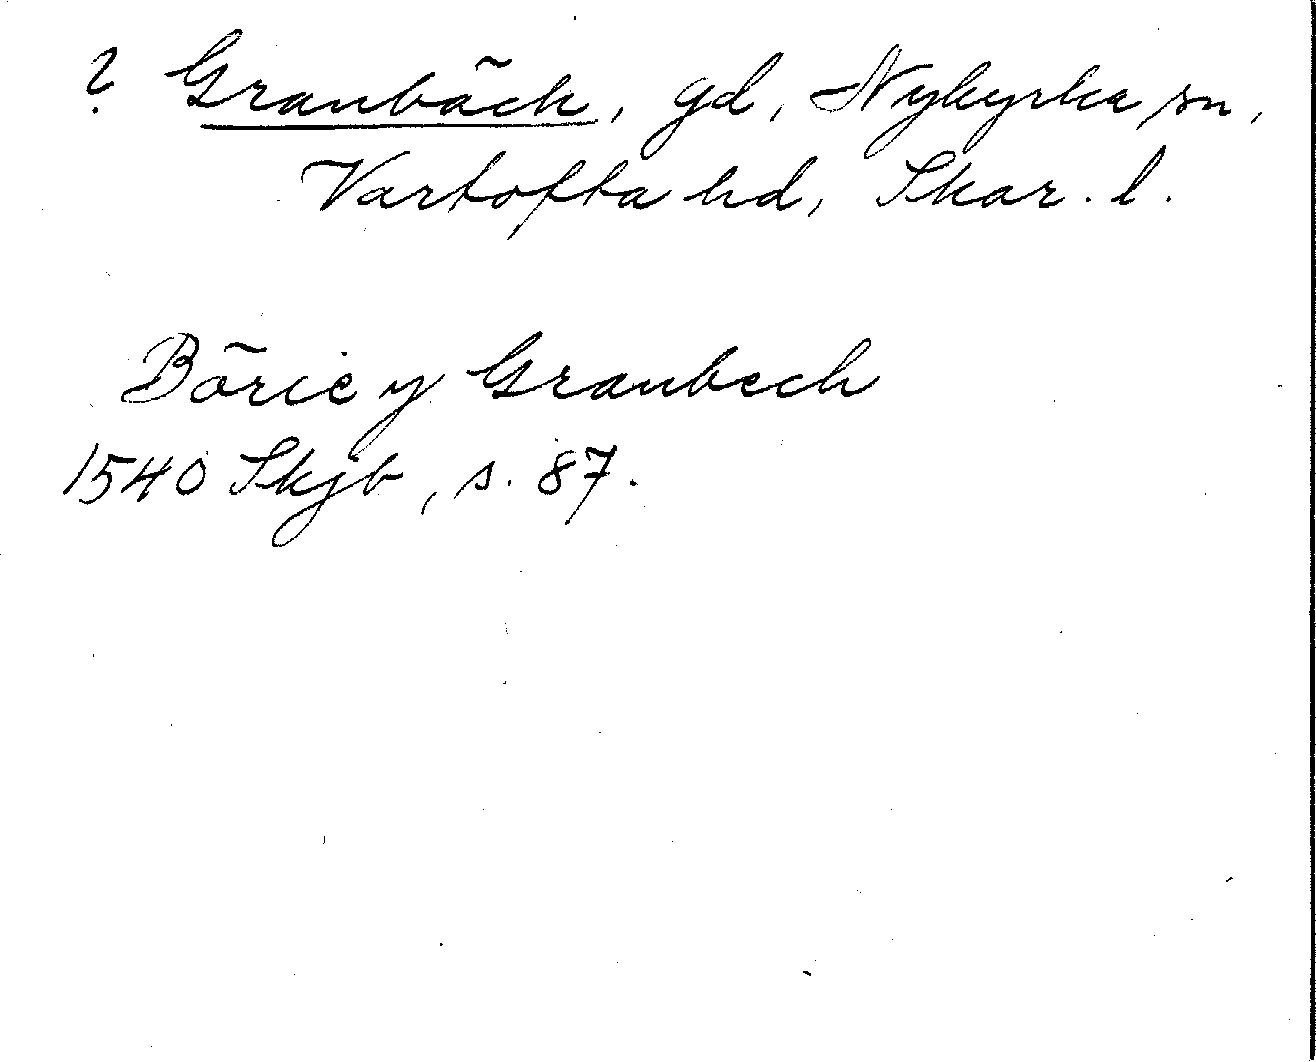 ? Granbäck, gd, Nykyrka sn,
Vartofta hd, Skar. l.
Börie y Granbech
1540 Skjb, s. 87.